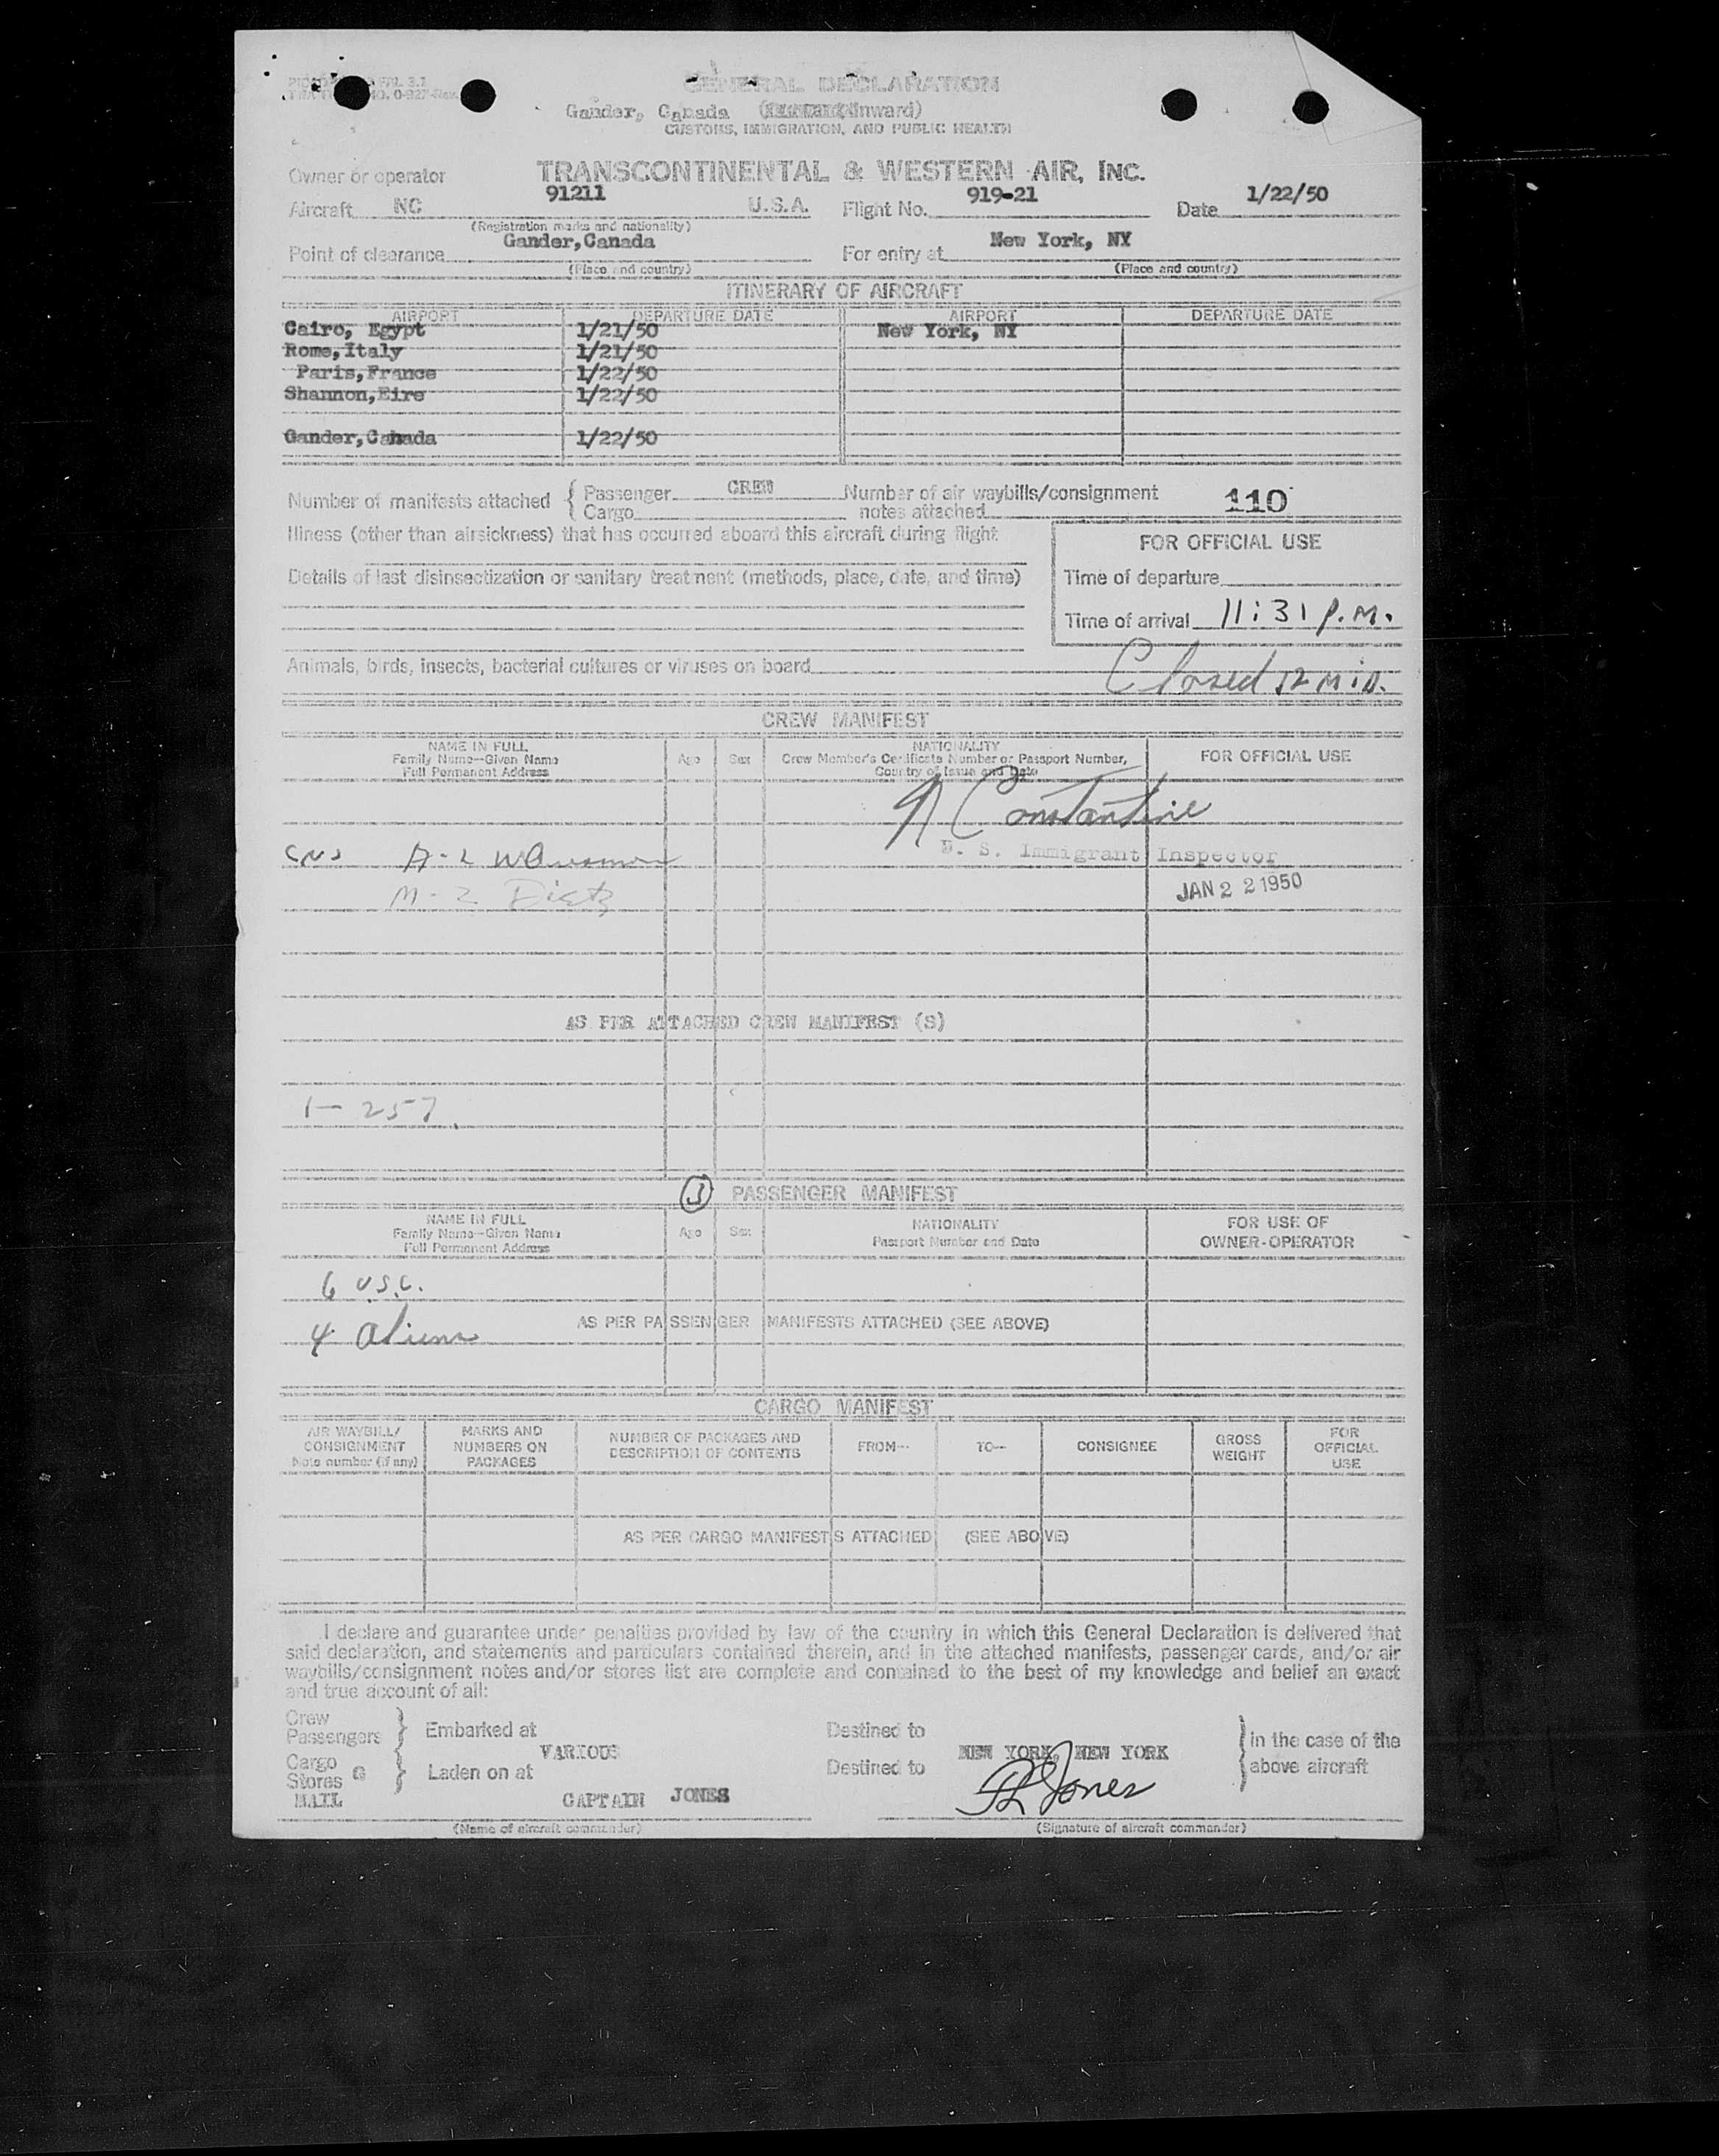 GENERAL DECLARATION
Gander, Canada (Inward)
CUSTOMS, IMMIGRATION, AND PUBLIC HEALTH
Owner or operator TRANSCONTINENTAL & WESTERN AIR, INC.
Aircraft NC 91211 U.S.A. Flight No. 919-21 Date 1/22/50
(Registration marks and nationality)
Point of clearance Gander,Canada For entry at New York, NY
(Place and country) (Place and country)
ITINERARY OF AIRCRAFT
AIRPORT DEPARTURE DATE AIRPORT DEPARTURE DATE
Cairo, Egypt 1/21/50 New York, NY
Rome,Italy 1/21/50
Paris,France 1/22/50
Shannon,Eire 1/22/50
Gander,Canada 1/22/50
Number of manifests attached { Passenger CREW Number of air waybills/consignment 110
Cargo notes attached
Illness (other than airsickness) that has occurred aboard this aircraft during flight
FOR OFFICIAL USE
Details of last disinsectization or sanitary treatment (methods, place, date, and time)
Time of departure
Time of arrival 11:31 P.M.
Animals, birds, insects, bacterial cultures or viruses on board
Closed 12 Mid.
CREW MANIFEST
NAME IN FULL Age Sex NATIONALITY FOR OFFICIAL USE
Family Name—Given Name Crew Member's Certificate Number or Passport Number,
Full Permanent Address Country of Issue and Date
Constantine
U. S. Immigrant Inspector
A-2
M-2 Dietz
JAN 22 1950
AS PER ATTACHED CREW MANIFEST (S)
1- 257
3 PASSENGER MANIFEST
NAME IN FULL Age Sex NATIONALITY FOR USE OF
Family Name—Given Name Passport Number and Date OWNER-OPERATOR
Full Permanent Address
6 U.S.C.
4 Aliens AS PER PASSENGER MANIFESTS ATTACHED (SEE ABOVE)
CARGO MANIFEST
AIR WAYBILL/ MARKS AND NUMBER OF PACKAGES AND FROM— TO— CONSIGNEE GROSS FOR
CONSIGNMENT NUMBERS ON DESCRIPTION OF CONTENTS WEIGHT OFFICIAL
Note number (if any) PACKAGES USE
AS PER CARGO MANIFESTS ATTACHED (SEE ABOVE)
I declare and guarantee under penalties provided by law of the country in which this General Declaration is delivered that
said declaration, and statements and particulars contained therein, and in the attached manifests, passenger cards, and/or air
waybills/consignment notes and/or stores list are complete and contained to the best of my knowledge and belief an exact
and true account of all:
Crew
Passengers } Embarked at Destined to } in the case of the
VARIOUS NEW YORK, NEW YORK
Cargo
Stores & } Laden on at Destined to above aircraft
MAIL CAPTAIN JONES Jones
(Name of aircraft commander) (Signature of aircraft commander)